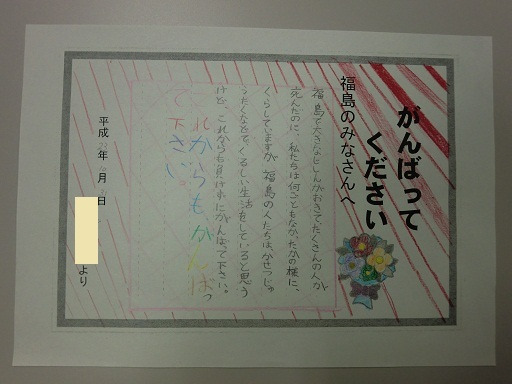 がんばって
ください
福島のみなさんへ
福島で大きなじしんがおきてたくさんの人が
死んだのに、私たちは何ごともなかったかの様に、
くらしていますが、福島の人たちは、かせつじゅ
うたくなどで、くるしい生活をしていると思う
けど、これからも負けずにがんばって下さい。
これからもがんばっ
て下さい。
平成23年10月31日
より